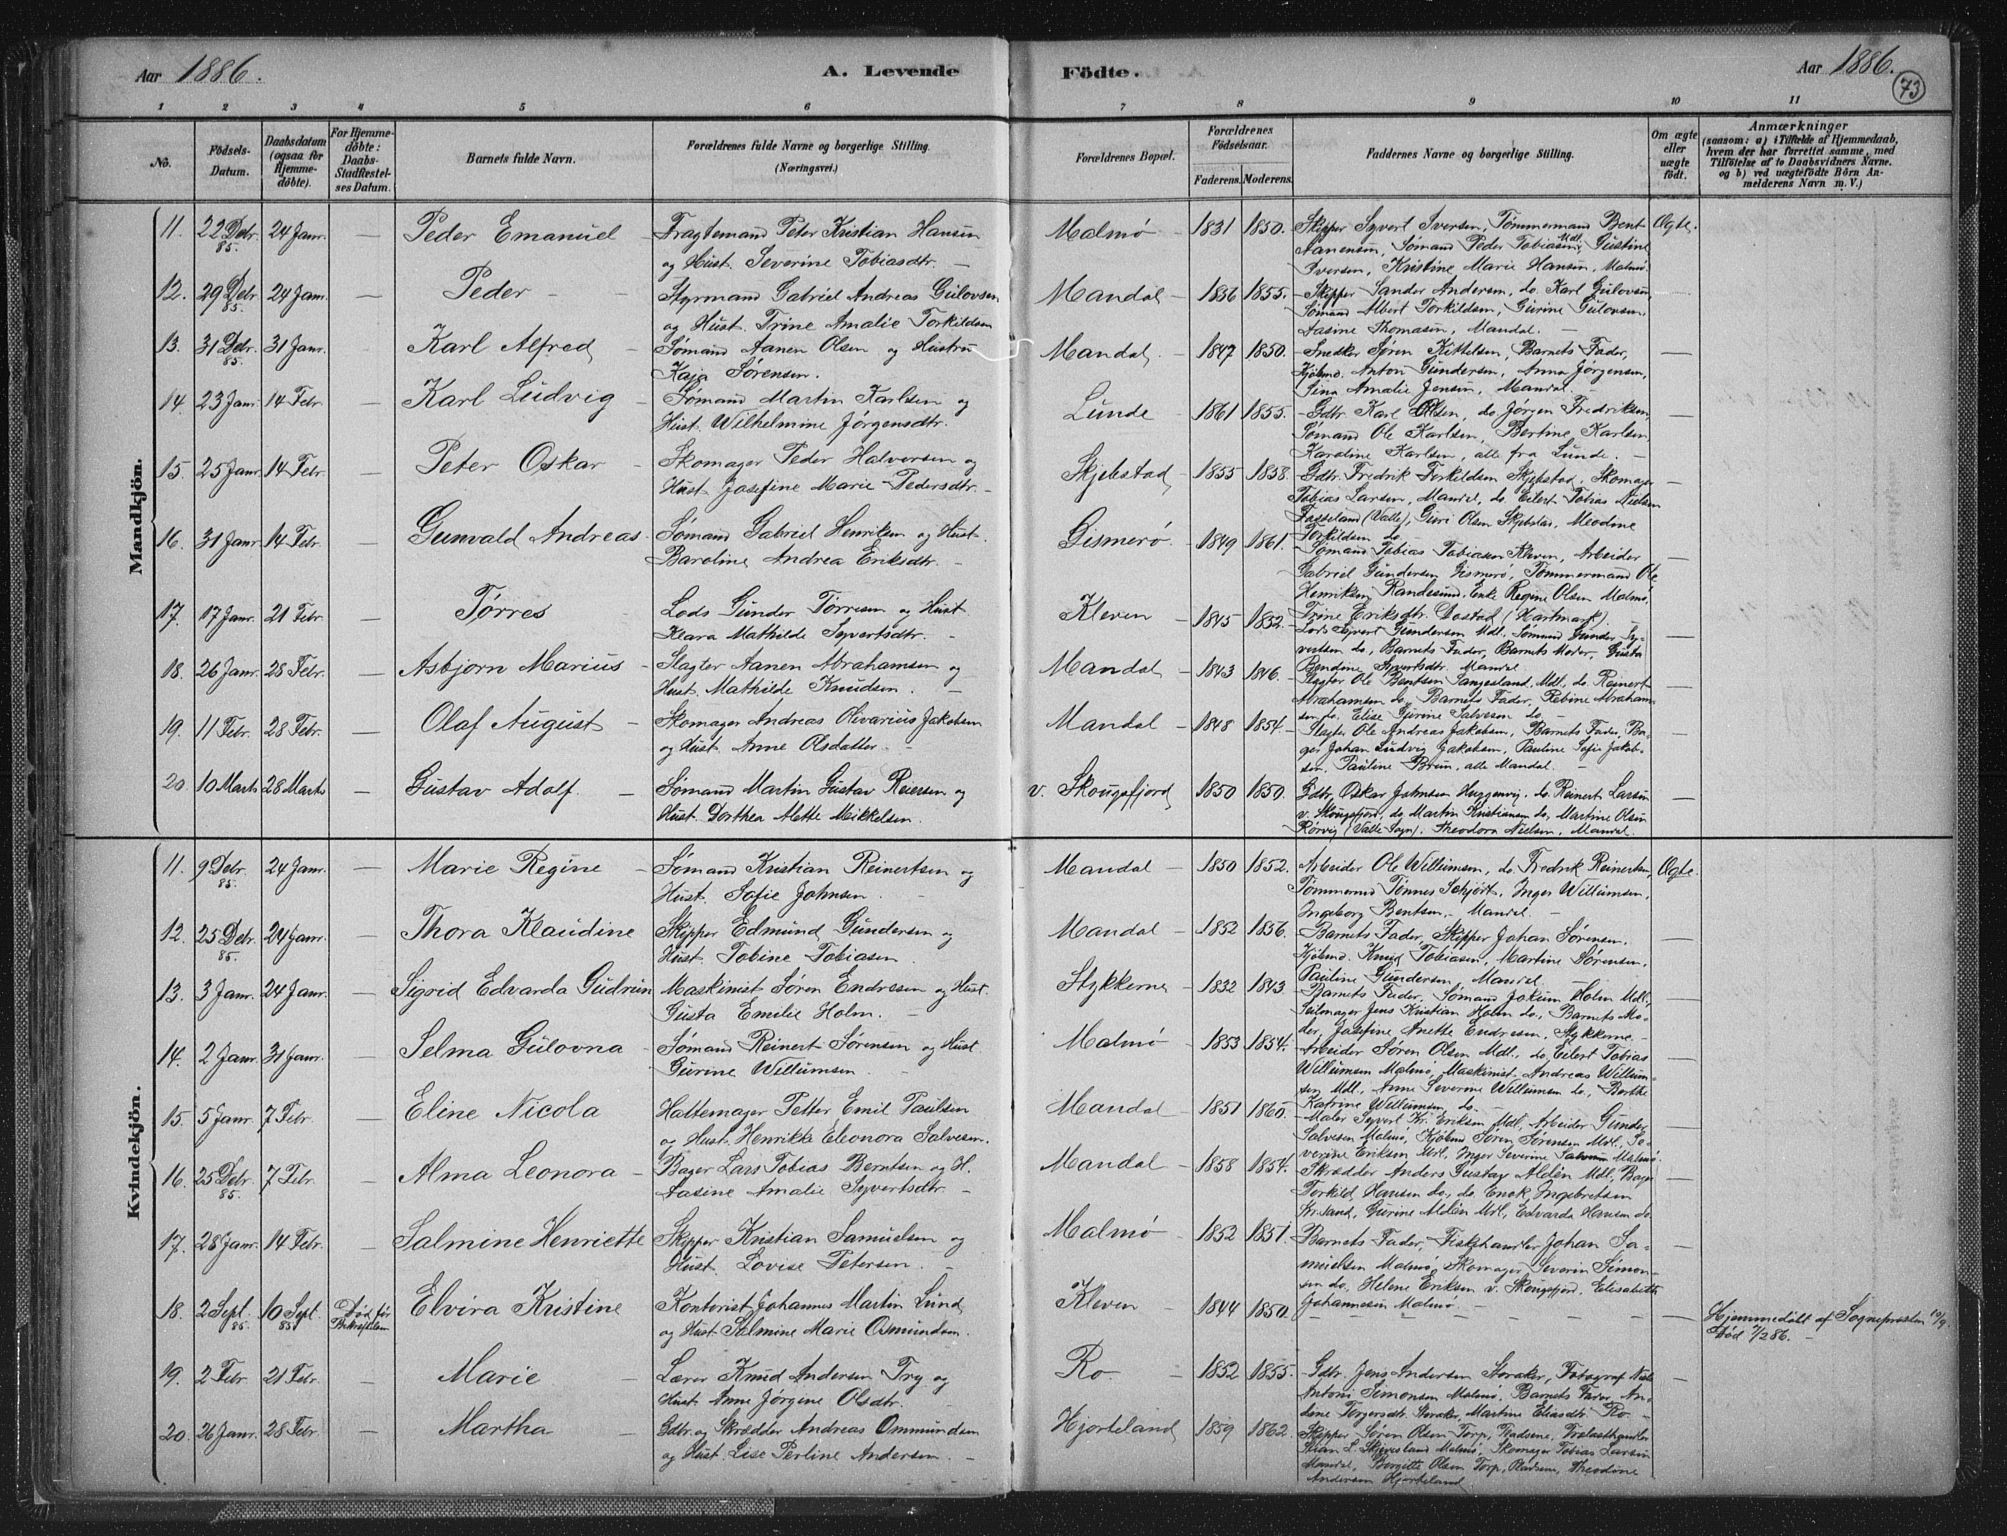 Aar 1886.
A. Levende
Födte.
Aar 1886.
73
1 2 3 4 5 6 7 8 9 10 11
No.
Födsels-Datum.
Daabsdatum (ogsaa for Hjemmedöbte).
For Hjemmedöbte: Daabs-Stadfæstelses Datum.
Barnets fulde Navn.
Forældrenes fulde Navne og borgerlige Stilling. (Næringsvei.)
Forældrenes Bopæl.
Forældrenes Födselsaar.
Faderens. Moderens.
Faddernes Navne og borgerlige Stilling.
Om ægte eller uægte födt.
Anmærkninger
(saasom: a) i Tilfælde af Hjemmedaab, hvem der har forrettet samme, med Tilföielse af to Daabsvidners Navne. og b) ved uægtefödte Börn Anmelderens Navn m. V.)
Mandkjön.
11. 22 Debr. 85. 24 Janr. — Peder Emanuel Fragtemand Peter Kristian Hansen og Hust. Severine Tobiasdtr. — Malmø 1831 1850. Skipper Syvert Iversen, Tømmermand Bent Aanensen, Sømand Peder Tobiasen Mdl, Gustine Iversen, Kristine Marie Hansen, Malmø. Ægte.
12. 29 Debr. 85. 24 Janr. — Peder Styrmand Gabriel Andreas Gulovsen og Hust. Trine Amalie Torkildsen Mandal 1856 1855. Skipper Sander Andersen, do. Karl Gulovsen Sømand Albert Torkildsen, Gurine Gulovsen, Aasine Thomasen, Mandal. —
13. 31 Debr. 85. 31 Janr. — Karl Alfred Sømand Aanen Olsen og Hustru Kaja Sørensen. Mandal. 1847 1850. Snedker Søren Kittelsen, Barnets Fader, Kjøbmd. Anton Gundersen, Anna Jørgensen, Sina Amalie Jensen, Mandal. —
14. 23 Janr. 14 Febr. — Karl Ludvig Sømand Martin Karlsen og Hust. Wilhelmine Jørgensdtr. Lunde 1861 1855. Gdbr. Karl Olsen, do Jørgen Fredriksen, Sømand Ole Karlsen, Bertine Karlsen, Karoline Karlsen, alle fra Lunde. —
15. 25 Janr. 14 Febr. — Peter Oskar Skomager Peder Halvorsen og Hust. Josefine Marie Pedersdtr. Skjebstad 1855 1858. Gdbr. Fredrik Torkildsen Skjebstad, Skomager Tobias Larsen, Mandal, do. Eilert Tobias Nielsen (Valle), Guri Olsen Skjebstad, Meodine Torkildsen do. —
16. 31 Janr. 14 Febr. — Gunvald Andreas Sømand Gabriel Henriksen og Hust. Baroline Andrea Eriksdtr. Gismerø 1849 1861. Sømand Tobias Tobiassen Kleven, Arbeider Gabriel Gundersen Gismerø, Tømmermand Ole Henriksen Randesund, Enke Regine Olsen Malmø, Trine Eriksdtr. (Hartmark). —
17. 17 Janr. 21 Febr. — Tørres Lods Gunder Tørresen og Hust Klara Mathilde Syvertsdtr. Kleven 1845 1852. Lods Syvert Gundersen Mdl. Sømand Gunder Syvertsen do, Barnets Fader, Barnets Moder, Gusta Bendine Syvertsdtr. Mandal. —
18. 26 Janr. 28 Febr. — Asbjørn Marius Slagter Aanen Abrahamsen og Hust. Mathilde Knudsen. Mandal 1843 1846. Slagter Ole Bentsen Sangesland, Mdl, do. Reinert Abrahamsen do. Barnets Fader, Rebine Abrahamsen do, Elise Gurine Salvesen do —
19. 11 Febr. 28 Febr. — Olaf August Skomager Andreas Olivarius Jakobsen og Hust. Anne Olsdatter. Mandal 1848 1854. Slagter Ole Andreas Jakobsen, Barnets Fader, Bager Johan Ludvig Jakobsen, Pauline Sofie Jakobsen, Pauline Bruun, alle Mandal. —
20. 10 Marts 28 Marts — Gustav Adolf. Sømand Martin Gustav Reiersen og Hust. Dorthea Mette Mikkelsen. v. Skougsfjord 1850 1850. Gdbr. Oskar Johnsen Huggenvig, do. Reinert Larsen v. Skougsfjord, do, Martin Kristiansen do, Martine Olsen Rørvig (Valle Sogn). Theodora Nielsen, Mandal. —
Kvindekjön.
11. 9 Debr. 85. 24 Janr. — Marie Regine Sømand Kristian Reinertsen og Hust. Sofie Johnsen. Mandal 1850 1852. Arbeider Ole Willumsen, do. Fredrik Reinertsen, Tømmermd Tønnes Schjørt, Inger Willumsen, Ingeborg Bentsen, Mandal. Ægte.
12. 25 Debr. 85. 24 Janr. — Thora Klaudine Skipper Edmund Gundersen og Hust. Tobine Tobiasen. Mandal 1852 1856. Barnets Fader, Skipper Johan Sørensen. Kjøbmd. Knud Tobiasen, Martine Sørensen, Pauline Gundersen, Mandal. —
13. 3 Janr. 24 Janr. — Sigrid Edvarda Gudrun Maskinist Søren Endresen og Hust. Gusta Emilie Holm. Stykkerne 1832 1843. Barnets Fader, Sømand Jokum Holm Mdl, Seilmager Jens Kristian Holm do, Barnets Moder, Josefine Anette Endresen, Stykkerne —
14. 2 Janr. 31 Janr. — Selma Gulovna Sømand Reinert Sørensen og Hust Gurine Willumsen. Malmø 1853 1854. Arbeider Søren Olsen Mdl. do. Eilert Tobias Willumsen Malmø, Maskinist Andreas Willumsen Mdl, Anne Severine Willumsen do, Berthe Katrine Willumsen do. —
15. 5 Janr. 7 Febr. — Eline Nicola Hattemager Petter Emil Paulsen og Hust. Henrikke Eleonora Salvesen. Mandal 1851 1860. Maler Syvert Kr. Eriksen Mdl, Arbeider Gunder Salvesen Malmø, Kjøbmd Søren Sørensen Mdl, Severine Eriksen Mdl, Inger Severine Salvesen Malmø —
16. 25 Debr. 85. 7 Febr. — Alma Leonora Bager Lars Tobias Berntsen og H. Aasine Amalie Syvertsdtr. Mandal 1858 1854. Skrædder Anders Gustav Aldén Mdl, Bager Torkild Hansen do, do. Enok Ingebretsen Kr.sand, Gurine Molén Mdl, Edvarda Hansen do. —
17. 28 Janr. 14 Febr. — Salmine Henriette Skipper Kristian Samuelsen og Hust. Lovise Petersen. Malmø 1852 1851. Barnets Fader, Fiskehandler Johan Samuelsen Malmø, Skomager Severin Simonsen do, Helene Eriksen v. Skougsfjord, Elisabeth Johannesen Malmø. —
18. 2 Sept. 85. 10 Sept. 85 Død før Bekræftelsen Elvira Kristine Kontorist Johannes Martin Lund og Hust Salmine Marie Osmundsen. Kleven 1844 1850. — Hjemmedøbt af Sognepresten 10/9. Død 7/2 86. —
19. 2 Febr. 21 Febr. — Marie Lærer Knud Andersen Try og Hust Anne Jørgine Olsdtr. Ro 1852 1855. Gdbr. Jens Andersen Storaker, Fotograf Nils Antoni Simonsen Malmø, Barnets Fader, Andine Torgersdtr. Storaker, Martine Eliasdtr Ro —
20. 26 Janr. 28 Febr. — Martha Gdbr. og Skrædder Andreas Ommundsen og Hust. Lise Perline Andersen. Hjorteland 1859 1862. Skipper Søren Olsen Torp, Trælasthandler Stian L. Skjævesland Malmø, Skomager Tobias Larsen Mandal, Birgitte Olsen Torp, Theodine Andersen Hjorteland —